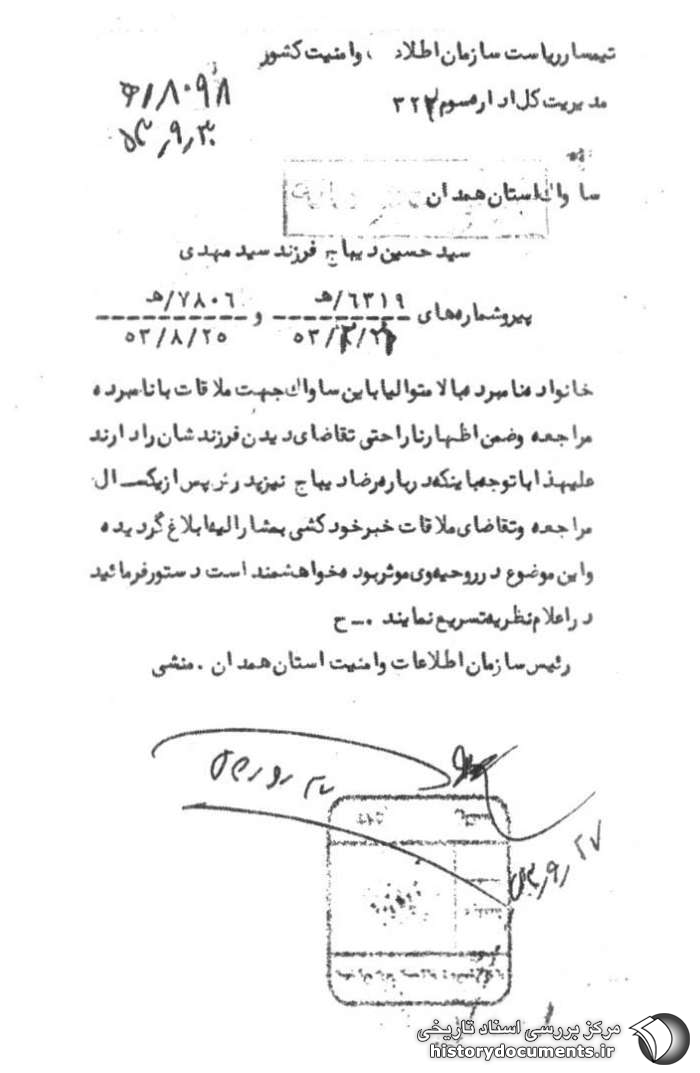 تیمسار ریاست سازمان اطلا ، وامنیت کشور
مدیریت کل اداره سوم ۳۲۲
ه/۸۰۹۸
۵۳٫۹٫۳۰
ساواک استان همدان
سید حسین دیباج فرزند سید مهدی
پیروشمارههای ۶۳۱۹/هـ و ۷۸۰۶/هـ
۵۳/۸/۲۵
خانواده نامبرده بالا متوالیا باین ساواک جهت ملاقات با نامبرده
مراجعه وضمن اظهار ناراحتی تقاضای دیدن فرزندشان را دارند
علیهذا با توجه باینکه درباره رضا دیباج نیز پدرش پس از یکسال
مراجعه وتقاضای ملاقات خبر خودکشی بمشارالیه ابلاغ گردیده
واین موضوع در روحیه وی موثر بوده خواهشمند است دستور فرمائید
در اعلام نظریه تسریع نمایند .ــ ح
رئیس سازمان اطلاعات وامنیت استان همدان . منشی
۵۳٫۹٫۲۷
مرکز بررسی اسناد تاریخی
historydocuments.ir